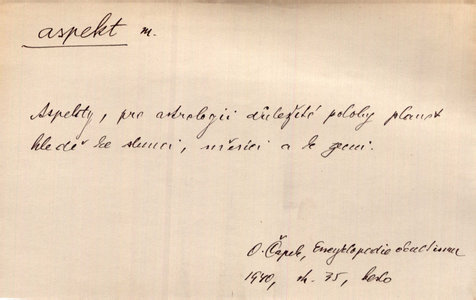 aspekt m.
Aspekty, pro astrologii důležité polohy planet
hledě ke slunci, měsíci a k zemi.
O. Čapek, Encyklopedie okultismu
1940, sh. 35, heslo